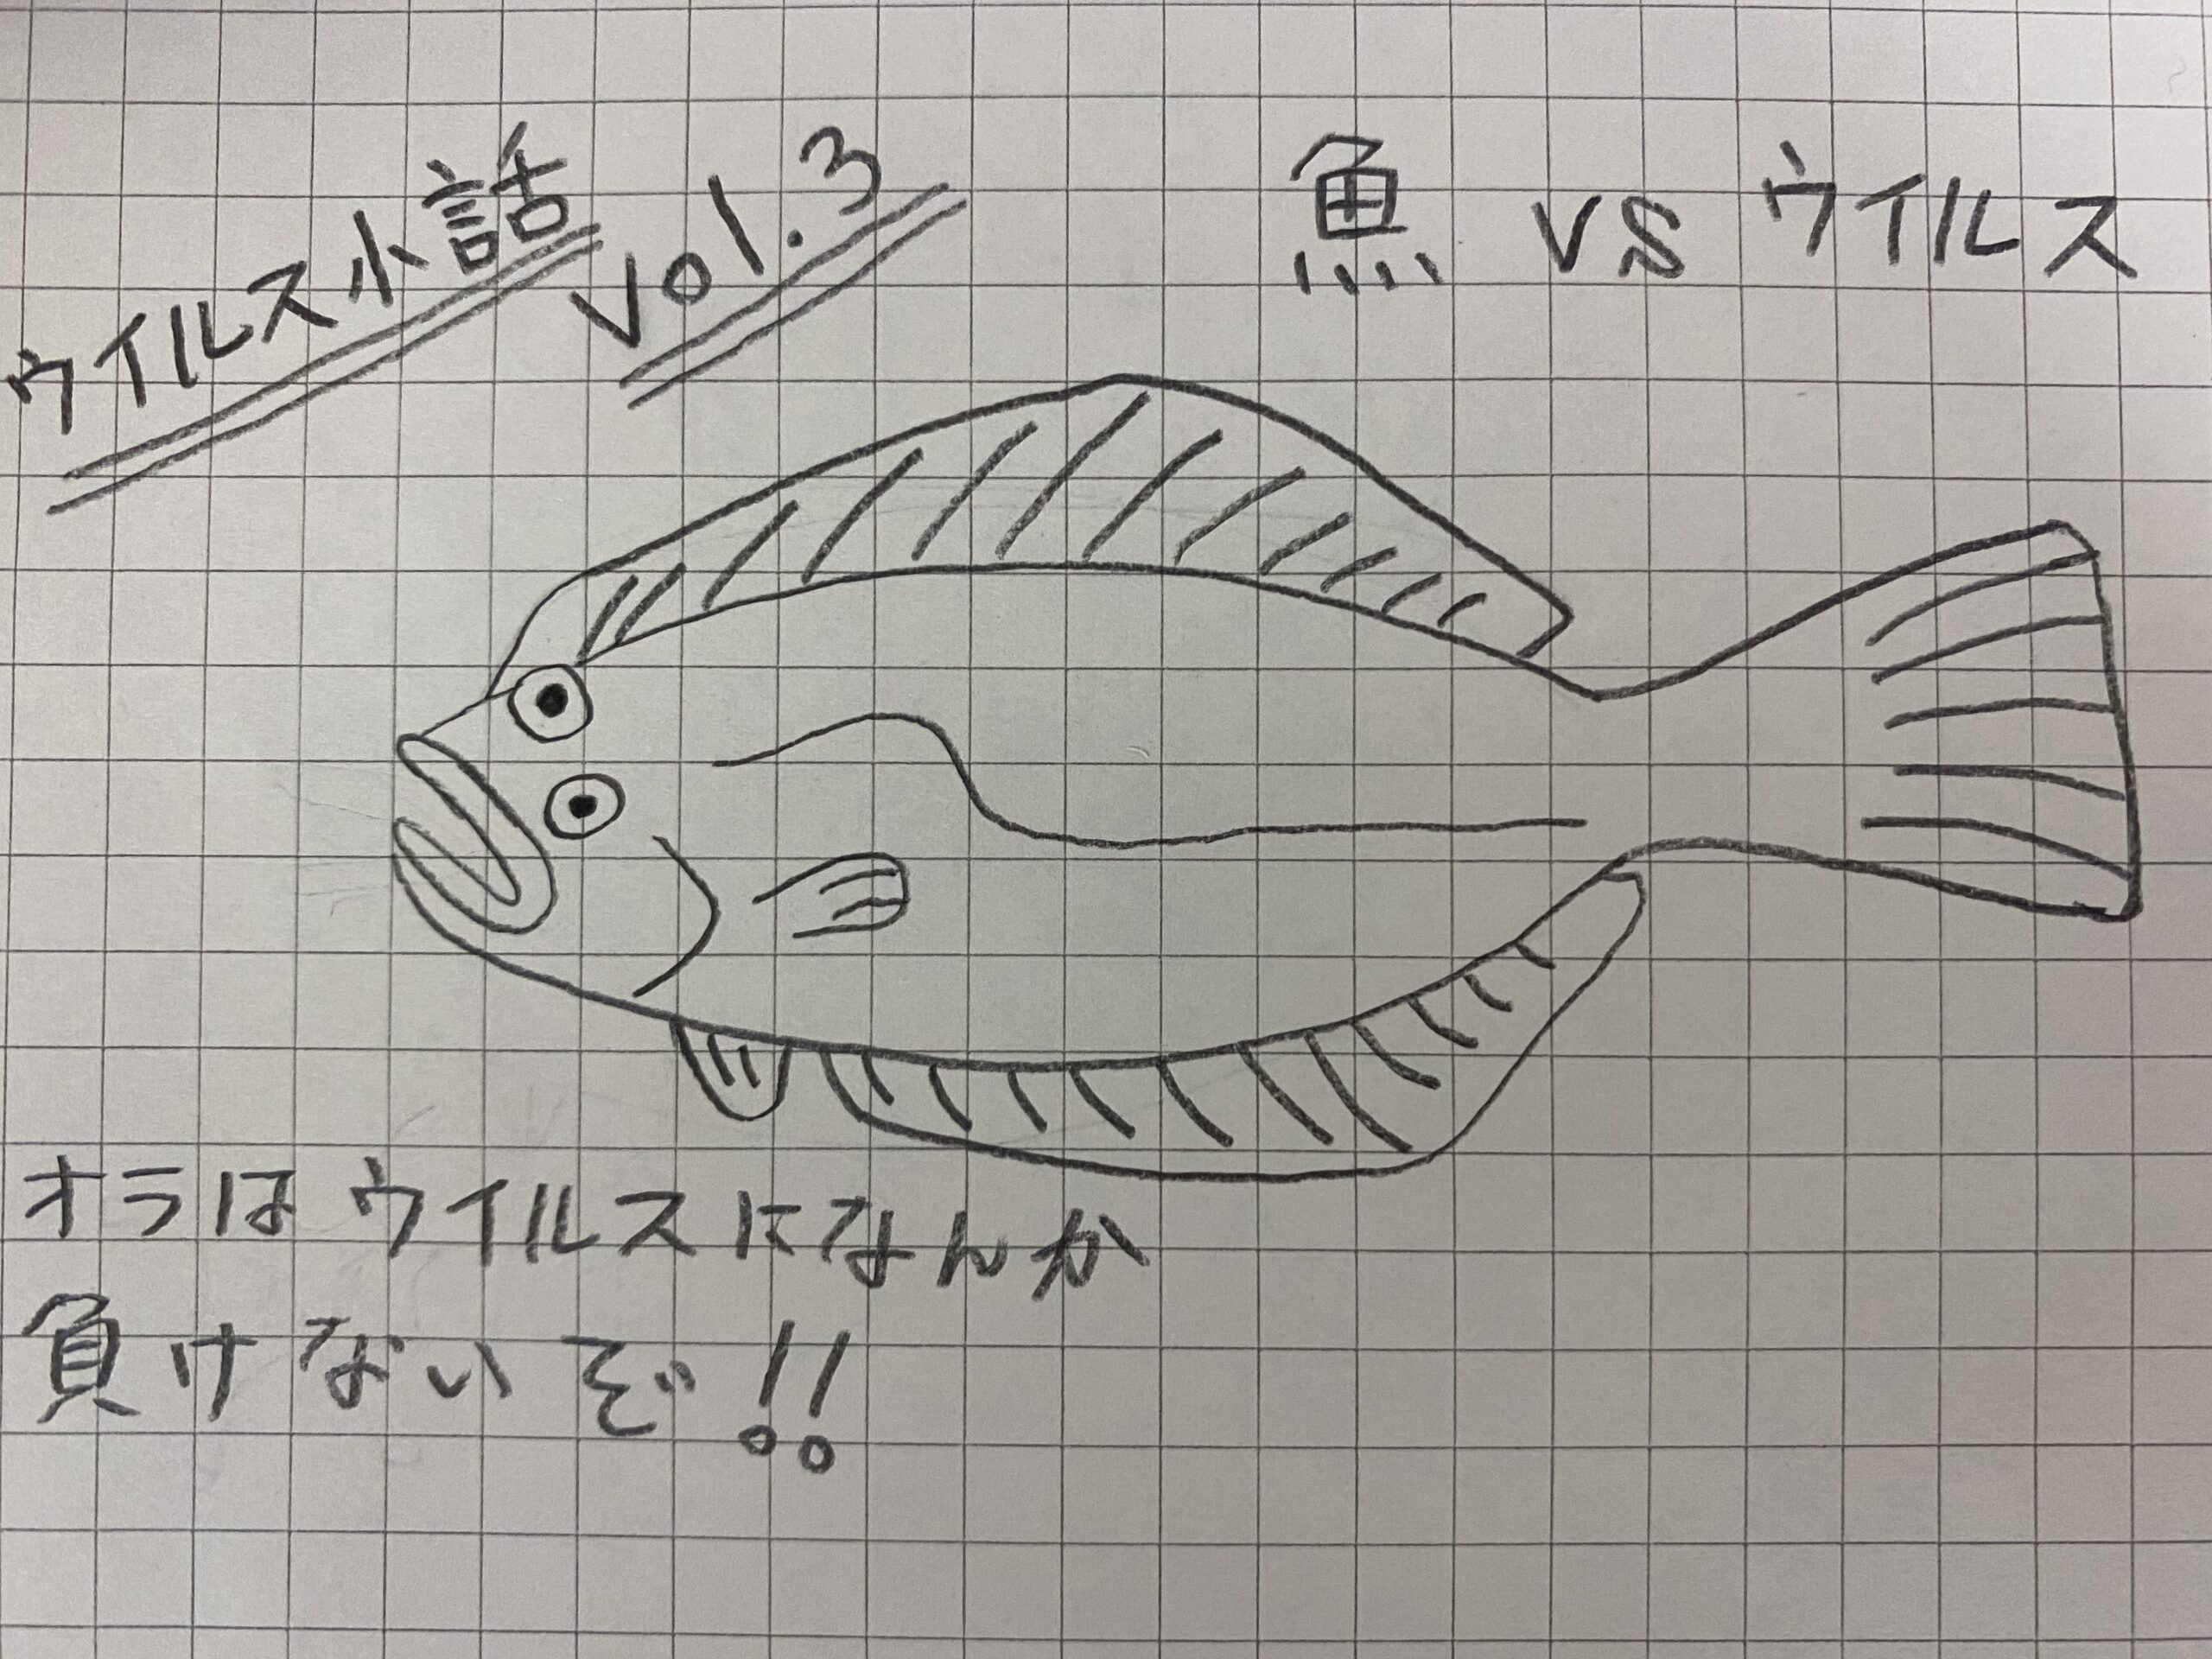 ウイルス小話 vol.3
魚 vs ウイルス
オラはウイルスになんか
負けないぞ!!